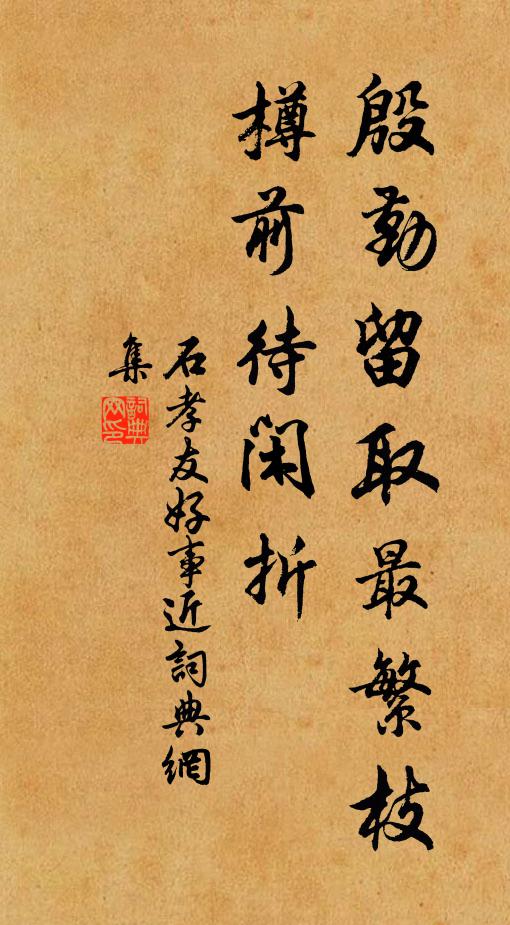 殷勤留取最繁枝
樽前待閑折
石孝友好事近詞典網
集
詞典網印